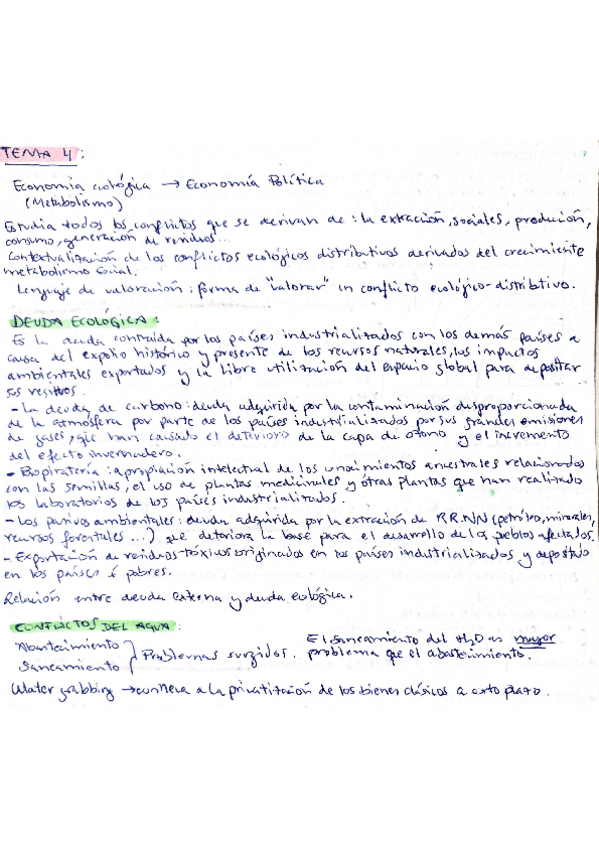 TEMA 4:
Economía ecológica → Economía Política
(Metabolismo)
Estudia todos los conflictos que se derivan de: la extracción, sociales, produción,
consumo, generación de residuos...
Contextualización de los conflictos ecológicos distributivos derivados del crecimiente
metabolismo social.
Lenguaje de valoración: forma de "valorar" un conflicto ecológico-distributivo.
DEUDA ECOLÓGICA:
Es la deuda contraída por los países industrializados con los demás países a
causa del expolio histórico y presente de los recursos naturales, los impactos
ambientales exportados y la libre utilización del espacio global para depositar
sus residuos.
- La deuda de carbono: deuda adquirida por la contaminación desproporcionada
de la atmósfera por parte de los países industrializados por sus grandes emisiones
de gases, que han causado el deterioro de la capa de ozono y el incremento
del efecto invernadero.
- Biopiratería: apropiación intelectual de los conocimientos ancestrales relacionados
con las semillas, el uso de plantas medicinales y otras plantas que han realizado
los laboratorios de los países industrializados.
- Los pasivos ambientales: deuda adquirida por la extracción de RR.NN (petróleo, minerales,
recursos forestales...) que deteriora la base para el desarrollo de los pueblos afectados.
- Exportación de residuos tóxicos originados en los países industrializados y deposítado
en los países + pobres.
Relación entre deuda externa y deuda ecológica.
CONFLICTOS DEL AGUA:
Abastecimiento
Saneamiento } Problemas surgidos.
El saneamiento del H2O es mayor
problema que el abastecimiento.
Water grabbing → conlleva a la privatización de los bienes clásicos a corto plazo.